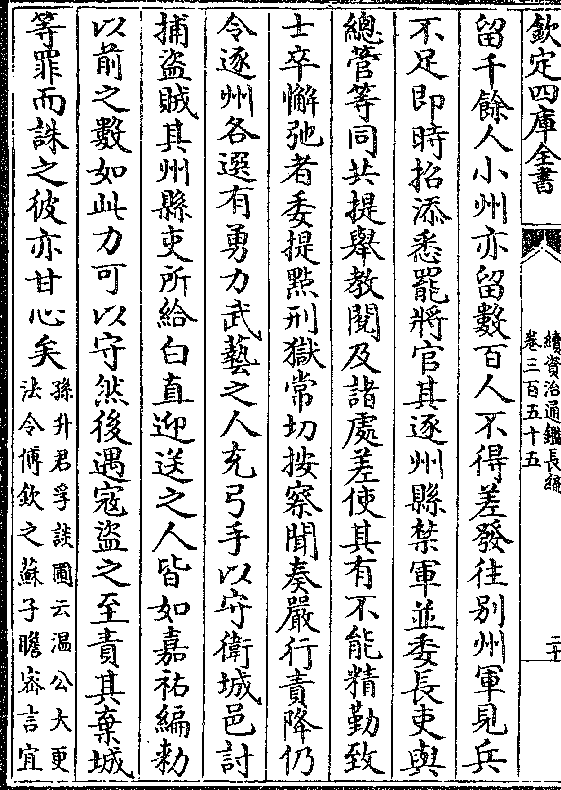 欽定四庫全書
續資治通鑑長編
卷三百五十五
二十
留千餘人小州亦留數百人不得差發往别州軍見兵
不足即時招添悉罷將官其逐州縣禁軍並委長吏與
總管等同共提舉教閱及諸處差使其有不能精勤致
士卒懈弛者委提㸃刑獄常切按察聞奏嚴行責降仍
令逐州各選有勇力武藝之人充弓手以守衛城邑討
捕盜賊其州縣吏所給白直迎送之人皆如嘉祐編勅
以前之數如此力可以守然後遇冦盜之至責其棄城
等罪而誅之彼亦甘心矣
孫升君孚談圃云温公大更
法令傅欽之蘇子瞻宻言宜